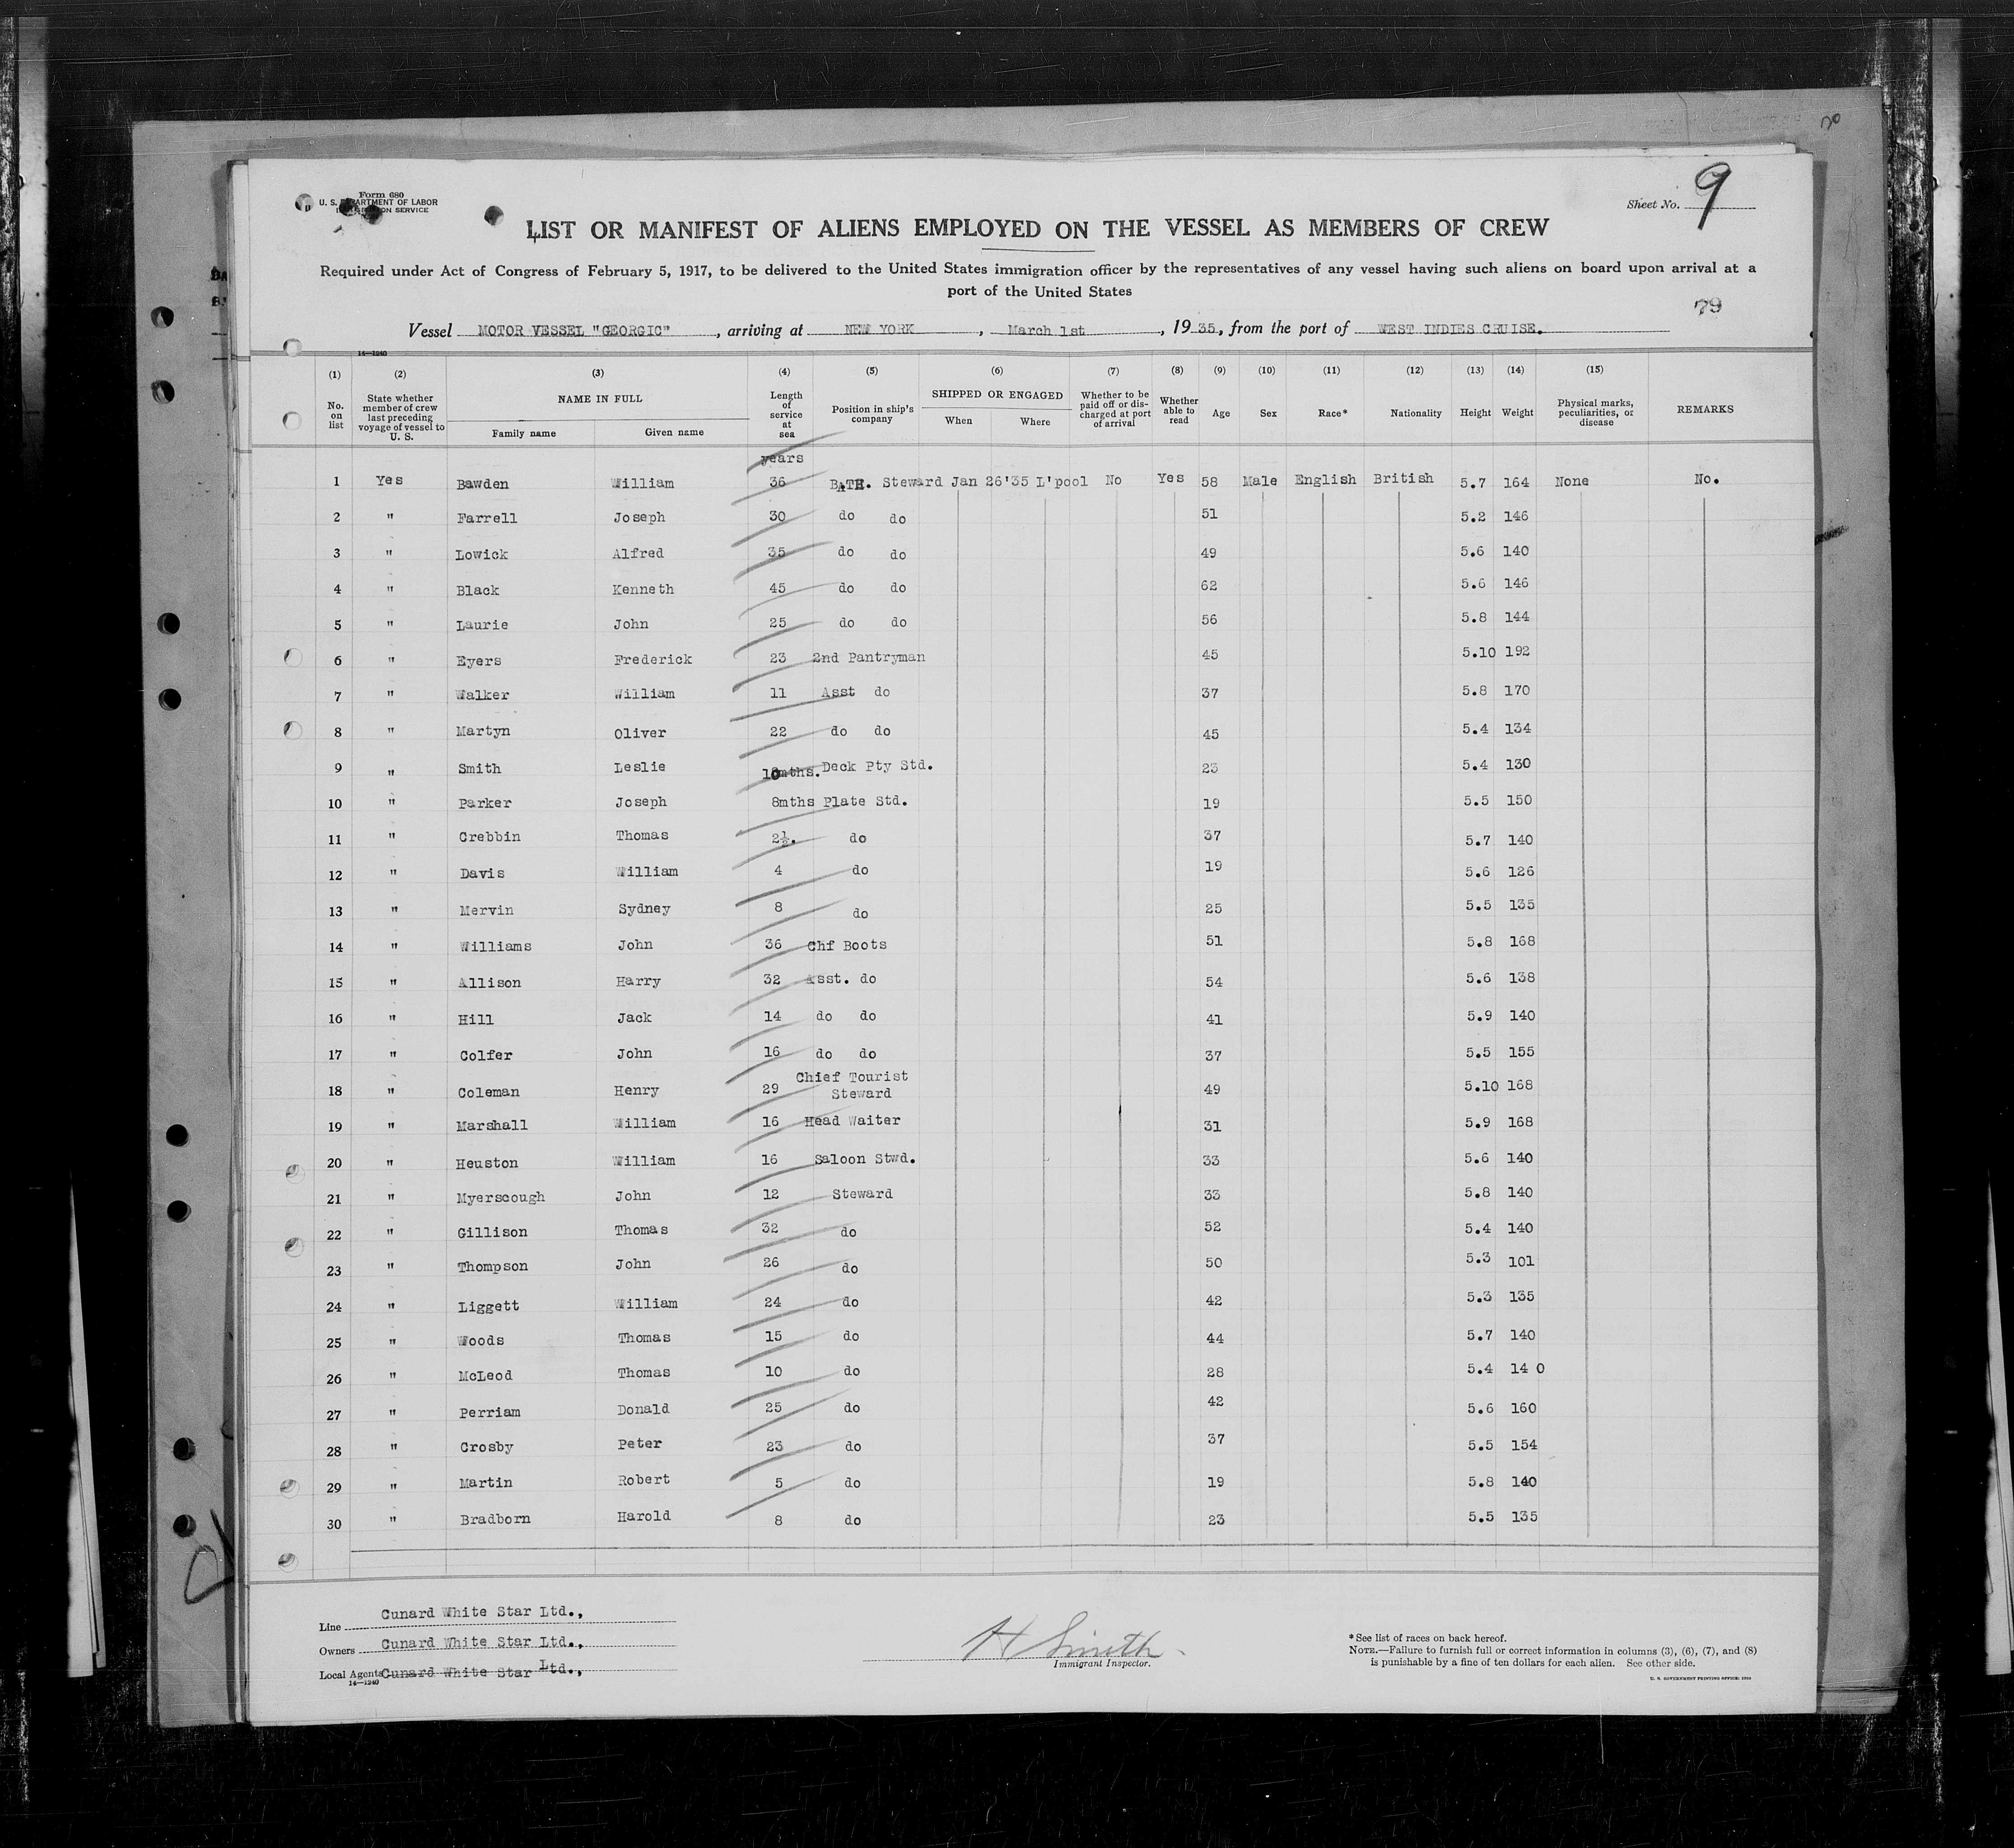 Form 680
U. S. DEPARTMENT OF LABOR
IMMIGRATION SERVICE
Sheet No. 9
LIST OR MANIFEST OF ALIENS EMPLOYED ON THE VESSEL AS MEMBERS OF CREW
Required under Act of Congress of February 5, 1917, to be delivered to the United States immigration officer by the representatives of any vessel having such aliens on board upon arrival at a
port of the United States
79
Vessel MOTOR VESSEL "GEORGIC", arriving at NEW YORK, March 1st, 19 35, from the port of WEST INDIES CRUISE.
14—1240
(1) (2) (3) (4) (5) (6) (7) (8) (9) (10) (11) (12) (13) (14) (15)
No. on list State whether member of crew last preceding voyage of vessel to U. S. NAME IN FULL Family name Given name Length of service at sea Position in ship's company SHIPPED OR ENGAGED When Where Whether to be paid off or discharged at port of arrival Whether able to read Age Sex Race* Nationality Height Weight Physical marks, peculiarities, or disease REMARKS
years
1 Yes Bawden William 36 BATH. Steward Jan 26'35 L'pool No Yes 58 Male English British 5.7 164 None No.
2 " Farrell Joseph 30 do do 51 5.2 146
3 " Lowick Alfred 35 do do 49 5.6 140
4 " Black Kenneth 45 do do 62 5.6 146
5 " Laurie John 25 do do 56 5.8 144
6 " Eyers Frederick 23 2nd Pantryman 45 5.10 192
7 " Walker William 11 Asst do 37 5.8 170
8 " Martyn Oliver 22 do do 45 5.4 134
9 " Smith Leslie 10mths. Deck Pty Std. 23 5.4 130
10 " Parker Joseph 8mths Plate Std. 19 5.5 150
11 " Crebbin Thomas 2½. do 37 5.7 140
12 " Davis William 4 do 19 5.6 126
13 " Mervin Sydney 8 do 25 5.5 135
14 " Williams John 36 Chf Boots 51 5.8 168
15 " Allison Harry 32 Asst. do 54 5.6 138
16 " Hill Jack 14 do do 41 5.9 140
17 " Colfer John 16 do do 37 5.5 155
18 " Coleman Henry 29 Chief Tourist Steward 49 5.10 168
19 " Marshall William 16 Head Waiter 31 5.9 168
20 " Heuston William 16 Saloon Stwd. 33 5.6 140
21 " Myerscough John 12 Steward 33 5.8 140
22 " Gillison Thomas 32 do 52 5.4 140
23 " Thompson John 26 do 50 5.3 101
24 " Liggett William 24 do 42 5.3 135
25 " Woods Thomas 15 do 44 5.7 140
26 " McLeod Thomas 10 do 28 5.4 14 0
27 " Perriam Donald 25 do 42 5.6 160
28 " Crosby Peter 23 do 37 5.5 154
29 " Martin Robert 5 do 19 5.8 140
30 " Bradborn Harold 8 do 23 5.5 135
Line Cunard White Star Ltd.,
Owners Cunard White Star Ltd.,
Local Agents Cunard White Star Ltd.,
14—1240
H Smith
Immigrant Inspector.
* See list of races on back hereof.
NOTE.—Failure to furnish full or correct information in columns (3), (6), (7), and (8)
is punishable by a fine of ten dollars for each alien. See other side.